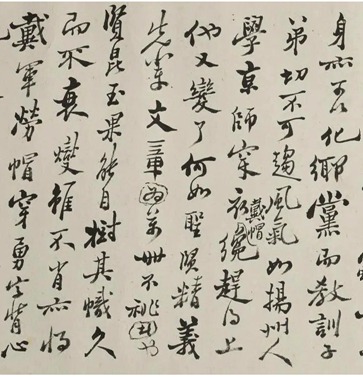 身亦可以化鄉黨而教訓子
弟切不可趨風氣如揚州人
學京師穿衣戴帽纔趕得上
他又變了何如聖賢精義
先輩文章萬世不祧
賢昆玉果能自樹其幟久
而不衰燮雖不肖亦將
戴軍勞帽穿勇字背心